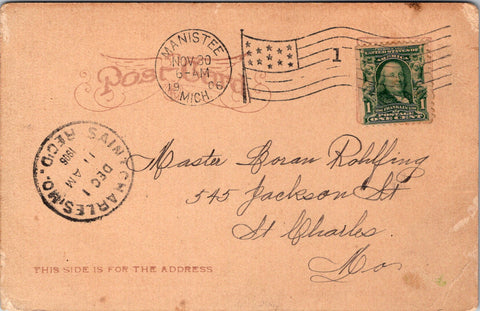 Post Card
MANISTEE
NOV 30
6 AM
1906
MICH.
1
UNITED STATES OF AMERICA
1 1
POSTAGE
ONE CENT
SAINT CHARLES, MO.
DEC 1
11 AM
1906
REC'D.
Master Loran Rohlfing
545 Jackson St
St Charles
Mo
THIS SIDE IS FOR THE ADDRESS